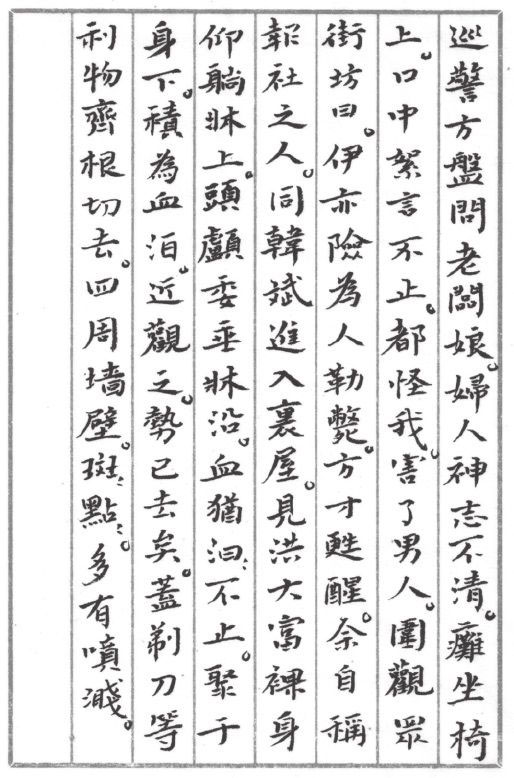 巡警方盤問老闆娘。婦人神志不清。癱坐椅
上。口中絮言不止。都怪我。害了男人。圍觀眾
街坊曰。伊亦險為人勒斃。方才甦醒。余自稱
報社之人。同韓斌進入裏屋。見洪大富裸身
仰躺牀上。頭顱委垂牀沿。血猶汩〻不止。聚于
身下。積為血泊。近觀之。勢已去矣。蓋剃刀等
利物齊根切去。四周墻壁。斑〻點〻。多有噴濺。